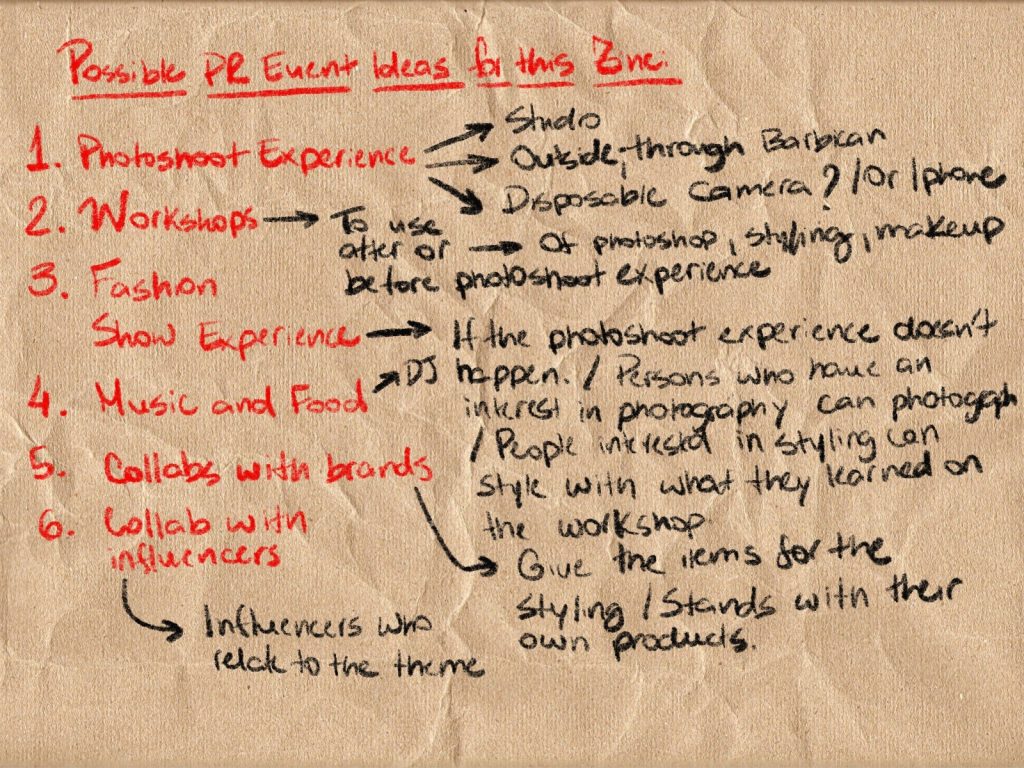 Possible PR Event Ideas for this Zine:
1. Photoshoot Experience → Studio
→ Outside, through Barbican
→ Disposable camera? / Or Iphone
2. Workshops → To use
after or → Of photoshop, styling, makeup
before photoshoot experience
3. Fashion
Show Experience → If the photoshoot experience doesn't
happen. / Persons who have an
interest in photography can photogaph
/ People interested in styling can
style with what they learned on
the workshop
4. Music and Food → DJ
5. Collabs with brands → Give the items for the
styling / Stands with their
own products.
6. Collab with
influencers
→ Influencers who
relate to the theme